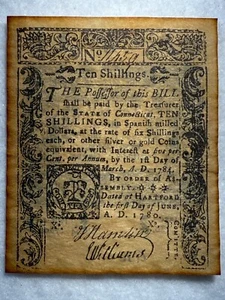 No
Ten Shillings.
THE Possessor of this BILL
shall be paid by the Treasurer
of the STATE of Connecticut, TEN
SHILLINGS, in Spanish milled
Dollars, at the rate of six Shillings
each, or other silver or gold Coins
equivalent, with Interest at five per
Cent. per Annum, by the 1st Day of
March, A. D. 1784.
BY ORDER OF AS-
SEMBLY.
Dated at HARTFORD
the first Day of JUNE,
A. D. 1780.
Williams